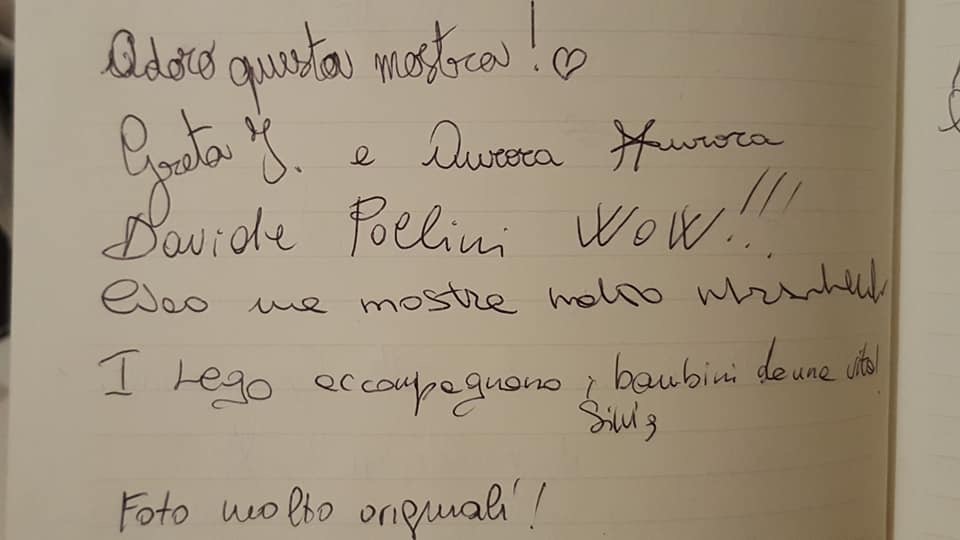 Adoro questa mostra! ♡
Greta J. e Aurora Aurora
Davide Pollini WOW!!!
una mostra molto
I Lego accompagnano i bambini da una vita!
Silvia
Foto molto originali!